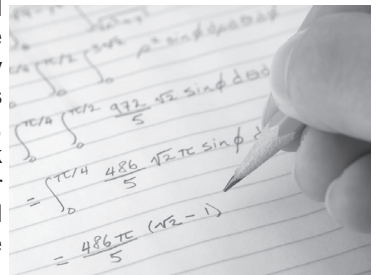 ∫₀^{π/4} ∫₀^{π/2} ∫₀^{3√2} ρ⁴ sin ϕ dρ dθ dϕ
∫₀^{π/4} ∫₀^{π/2} 972/5 √2 sin ϕ dθ d
= ∫₀^{π/4} 486/5 √2 π sin ϕ d
= 486π/5 (√2 - 1)